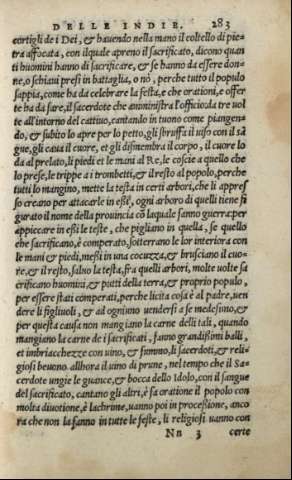 DELLE INDIE. 283
cortigli de i Dei, & hauendo nella mano il coltello di pie-
tra affocata, con ilquale apreno il sacrificato, dicono quan
ti huomini hanno di sacrificare, & se hanno da essere don-
ne, o schiaui presi in battaglia, o nò, perche tutto il popolo
sappia, come ha da celebrare la festa, e che orationi, e offer
te ha da fare, il sacerdote che amministra l'officio da tre uol
te all'intorno del cattiuo, cantando in tuono come piangen-
do, & subito lo apre per lo petto, gli sbruffa il uiso con il sã
gue, gli caua il cuore, et gli dismembra il corpo, il cuore lo
da al prelato, li piedi et le mani al Re, le coscie a quello che
lo prese, le trippe a i trombetti, & il resto al popolo, perche
tutti lo mangino, mette la testa in certi arbori, che li appres
so creano per attacarle in essi, ogni arboro di quelli tiene fi
gurato il nome della prouincia cõ laquale fanno guerra: per
appiccare in essi le teste, che pigliano in quella, se quello
che sacrificano, è comperato, sotterrano le lor interiora con
le mani & piedi, messi in una cocuzza, & brusciano il cuo-
re, & il resto, saluo la testa, fra quelli arbori, molte uolte sa
crificano huomini, & putti della terra, & proprio popolo,
per essere stati comperati, perche licita cosa è al padre, uen
dere li figliuoli, & ad ogniuno uendersi a se medesimo, &
per questa causa non mangiano la carne delli tali, quando
mangiano la carne de i sacrificati, fanno grandissimi balli,
et imbriachezze con uino, & fummo, li sacerdoti, & reli-
giosi beuono allhora il uino di prune, nel tempo che il Sa-
cerdote ungie le guance, & bocca dello Idolo, con il sangue
del sacrificato, cantano gli altri, è fa oratione il popolo con
molta diuotione, è lachrime, uanno poi in processione, anco
ra che non la fanno in tutte le feste, li religiosi uanno con
Nn 3 certe